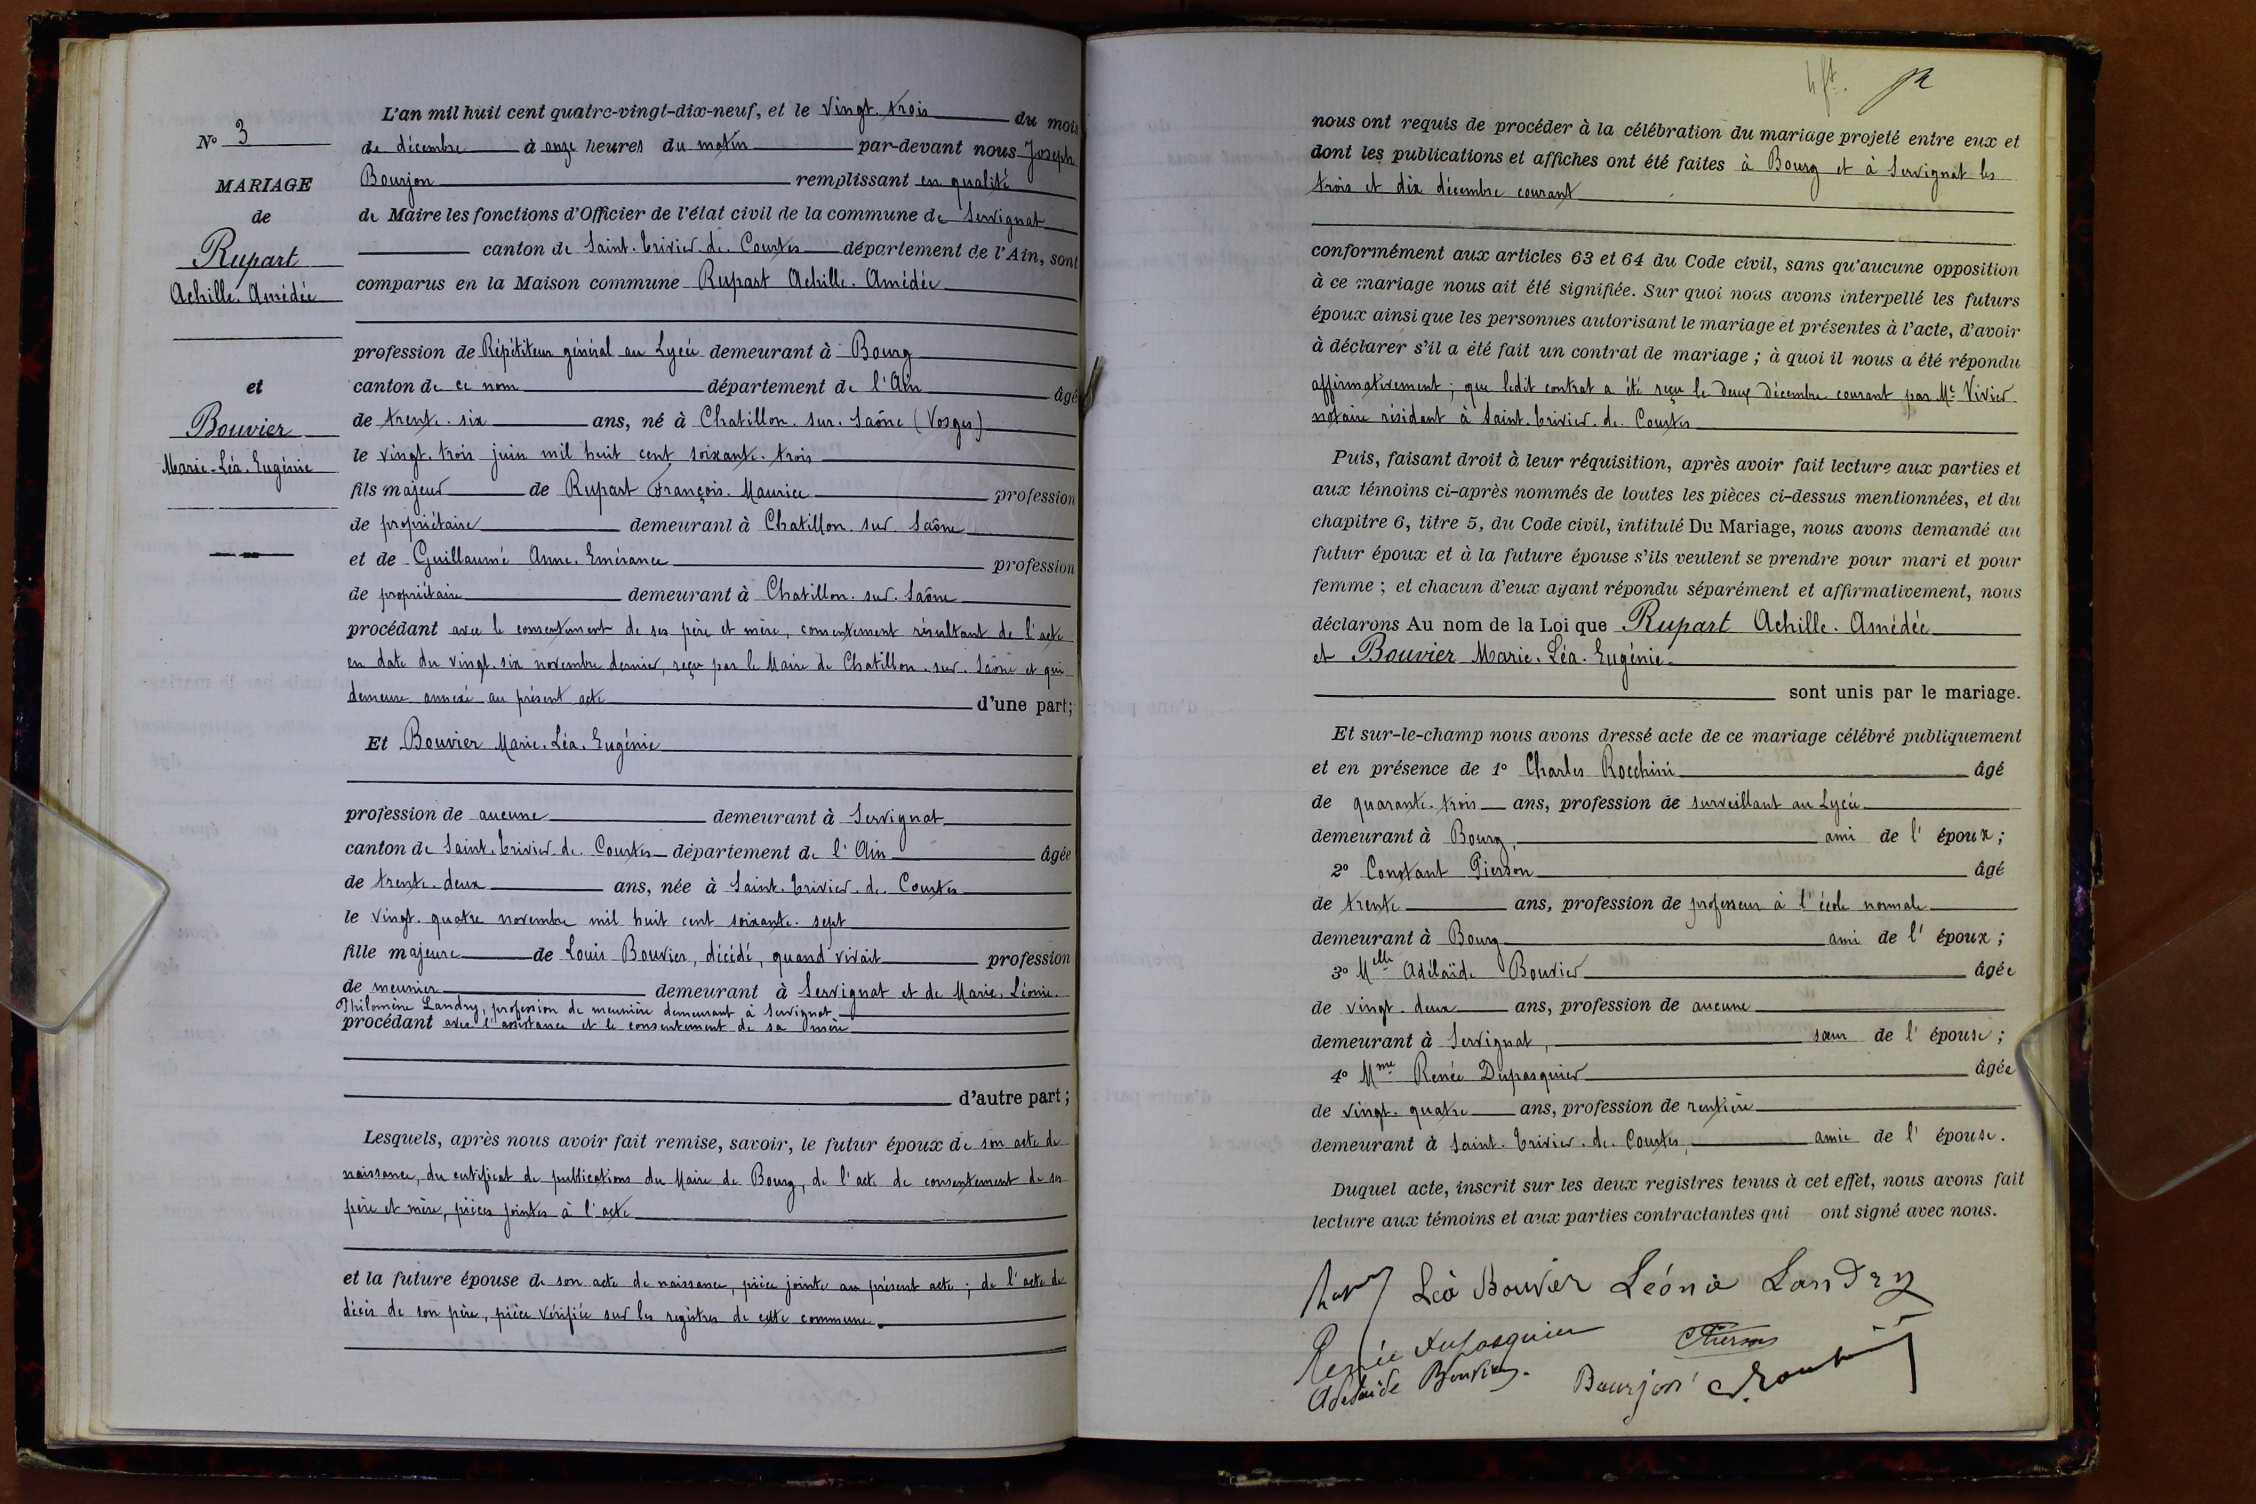 N° 3
MARIAGE
de
Rupart
Achille. Amédée
et
Bouvier
Marie-Léa. Eugénie
L'an mil huit cent quatre-vingt-dix-neuf, et le vingt. trois du mois
de décembre à onze heures du matin par-devant nous Joseph
Bourjon remplissant en qualité
de Maire les fonctions d'Officier de l'état civil de la commune de Servignat
canton de Saint. Trivier. de. Courtes département de l'Ain, sont
comparus en la Maison commune Rupart Achille. Amédée
profession de Répétiteur général au Lycée demeurant à Bourg
canton de ce nom département de l'Ain âgé
de trente. six ans, né à Chatillon. sur. Saône (Vosges)
le vingt. trois juin mil huit cent soixante. trois
fils majeur de Rupart François. Maurice profession
de propriétaire demeurant à Chatillon. sur. Saône
et de Guillaumé Anne. Emérance profession
de propriétaire demeurant à Chatillon. sur. Saône
procédant avec le consentement de ses père et mère, consentement résultant de l'acte
en date du vingt. six novembre dernier, reçu par le Maire de Chatillon. sur. Saône et qui
demeure annexé au présent acte d'une part;
Et Bouvier Marie. Léa. Eugénie
profession de aucune demeurant à Servignat
canton de Saint. Trivier. de. Courtes département de l'Ain âgée
de trente. deux ans, née à Saint. Trivier. de. Courtes
le vingt. quatre novembre mil huit cent soixante. sept
fille majeure de Louis Bouvier, décédé, quand vivait profession
de meunier demeurant à Servignat et de Marie. Léonie.
Philomène Landry, profession de meunière demeurant à Servignat
procédant avec l'assistance et le consentement de sa mère
d'autre part;
Lesquels, après nous avoir fait remise, savoir, le futur époux de son acte de
naissance, du certificat de publications du Maire de Bourg, de l'acte de consentement de ses
père et mère, pièces jointes à l'acte
et la future épouse de son acte de naissance, pièce jointe au présent acte; de l'acte de
décès de son père, pièce vérifiée sur les registres de cette commune.
nous ont requis de procéder à la célébration du mariage projeté entre eux et
dont les publications et affiches ont été faites à Bourg et à Servignat les
trois et dix décembre courant
conformément aux articles 63 et 64 du Code civil, sans qu'aucune opposition
à ce mariage nous ait été signifiée. Sur quoi nous avons interpellé les futurs
époux ainsi que les personnes autorisant le mariage et présentes à l'acte, d'avoir
à déclarer s'il a été fait un contrat de mariage; à quoi il nous a été répondu
affirmativement; que ledit contrat a été reçu le deux décembre courant par Me Vivier
notaire résidant à Saint. Trivier. de. Courtes
Puis, faisant droit à leur réquisition, après avoir fait lecture aux parties et
aux témoins ci-après nommés de toutes les pièces ci-dessus mentionnées, et du
chapitre 6, titre 5, du Code civil, intitulé Du Mariage, nous avons demandé au
futur époux et à la future épouse s'ils veulent se prendre pour mari et pour
femme; et chacun d'eux ayant répondu séparément et affirmativement, nous
déclarons Au nom de la Loi que Rupart Achille. Amédée
et Bouvier Marie. Léa. Eugénie.
sont unis par le mariage.
Et sur-le-champ nous avons dressé acte de ce mariage célébré publiquement
et en présence de 1° Charles Rocchini âgé
de quarante. trois ans, profession de surveillant au Lycée
demeurant à Bourg, ami de l'époux;
2° Constant Pierson âgé
de trente ans, profession de professeur à l'école normale
demeurant à Bourg ami de l'époux;
3° Melle Adélaïde Bouvier âgée
de vingt. deux ans, profession de aucune
demeurant à Servignat, sœur de l'épouse;
4° Mme Renée Dupasquier âgée
de vingt. quatre ans, profession de rentière
demeurant à Saint. Trivier. de. Courtes, amie de l'épouse.
Duquel acte, inscrit sur les deux registres tenus à cet effet, nous avons fait
lecture aux témoins et aux parties contractantes qui ont signé avec nous.
Léa Bouvier Léonie Landry
Renée Dupasquier Pierson
Adélaïde Bouvier. Bourjon